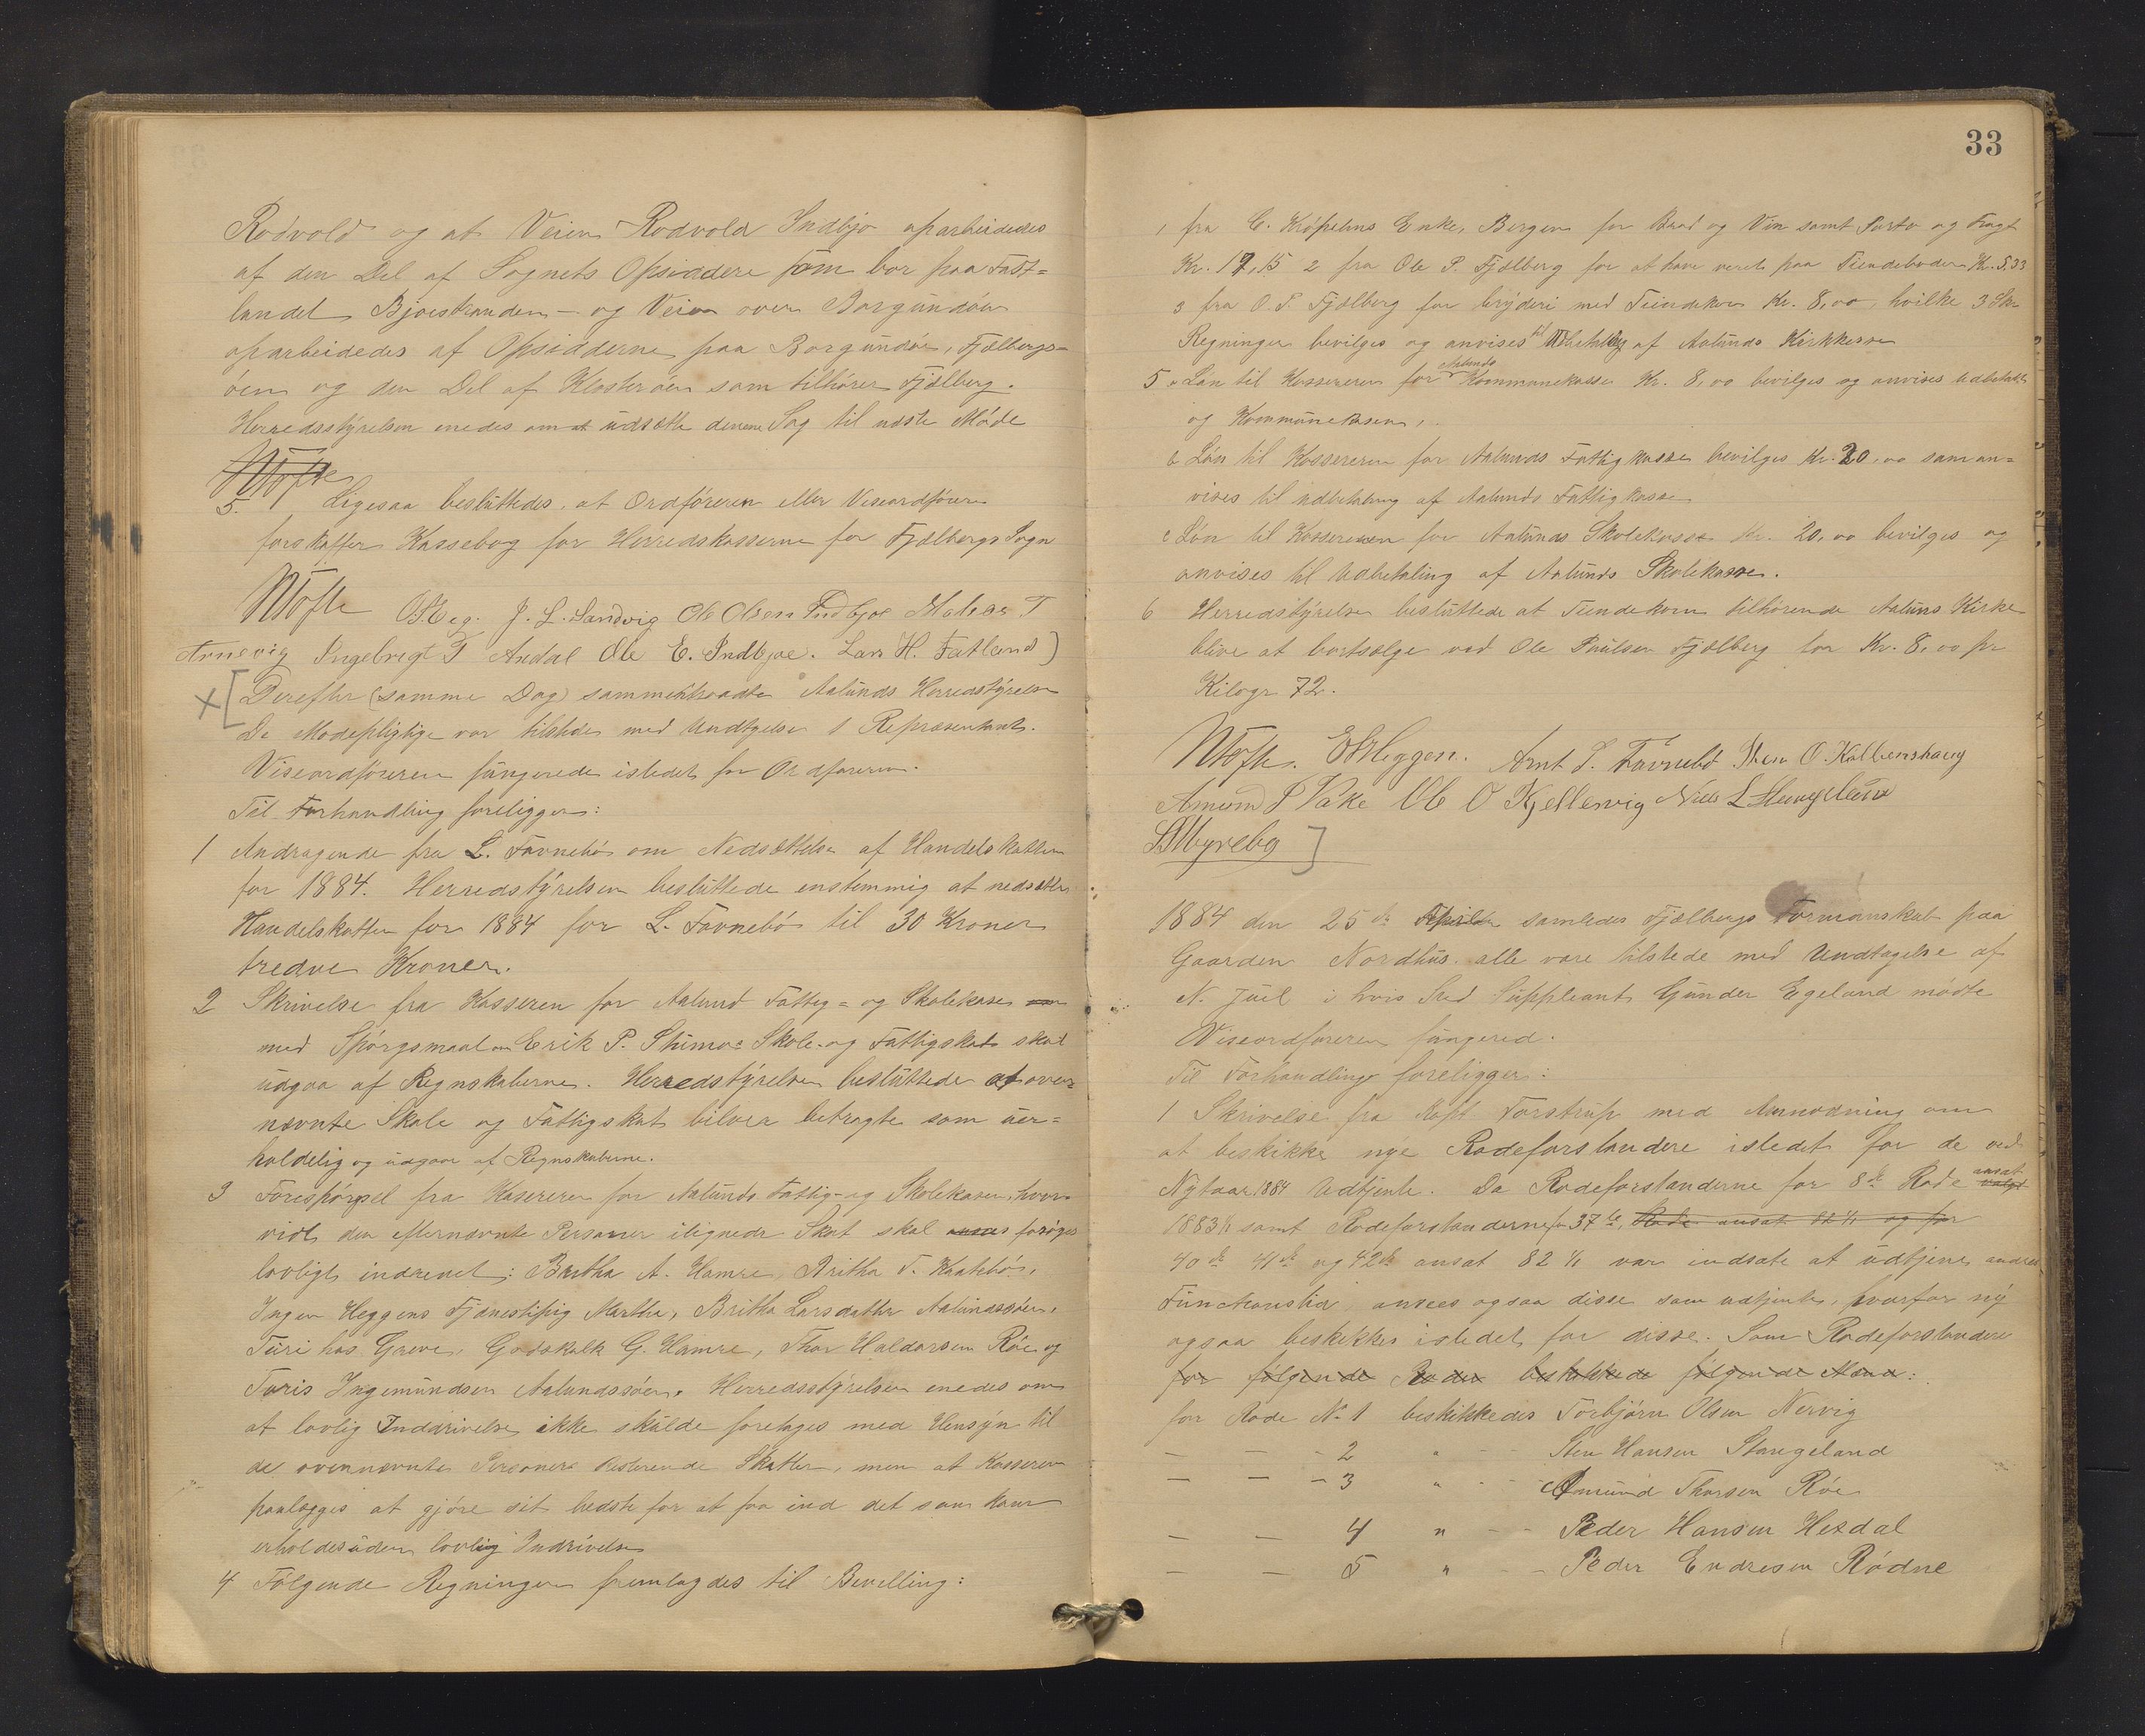 Rødvold og at Veien Rødvold Indbjo oparbeidedes
af den Del af Sognets Opsiddere som bor paa Fast=
landet Bjoestranden – og Veien over Borgundøen
oparbeidedes af Opsidderne paa Borgundøen, Fjelbergs=
øen og den Del af Klosterøen som tilhører Fjelberg.
Herredsstyrelsen enedes om at udsætte denne Sag til næste Møde
5. Ligesaa besluttedes, at Ordføreren eller Viseordføreren
forskaffer Kassebog for Herredskasserne for Fjælbergs Sogn
NTofte J. L. Sandvig Ole Olsen Indbjoe Mateas T
Arnevig Ingebrigt T Andal Ole E. Indbjoe. Lars H. Fatland)
x [ Derefter (samme Dag) sammentraadte Aalunds Herredstyrelse
De Modepligtige var tilstede med Undtgelse 1 Repræsentant.
Viseordføreren fungerede istedet for Ordføreren.
Til Forhandling foreligger:
1 Andragende fra L. Tavnebø om Nedsættelse af Handelskatten
for 1884. Herredstyrelsen besluttede enstemmig at nedsætte
Handelskatten for 1884 for L. Tavnebø til 30 Kroner
tredve Kroner.
2 Skrivelse fra Kasseren for Aalund Fattig= og Skolekasse
med Spørgsmaal om Erik P. Stumos Skole- og Fattigskat skal
udgaa af Regnskaberne. Herredstyrelsen besluttede at oven
nævnte Skole og Fattigskat bliver betragte som uer=
holdelig og udgaar af Regnskaberne.
3 Forespørgsel fra Kasereren for Aalunds Fattig- og Skolekasse, hvor
vidt den efternævnte Personer ilignede Skat skal forsøges
lovligt inddrevet: Britha A. Hamre, Britha T. Kaatebø,
Inger Heggens Tjænestepig Martha, Britha Larsdatter Aalundssøen.
Turi hos Greve, Godskalk G. Hamre, Thor Haldorsen Røe og
Toris Ingemundsen Aalundssøen. Herredsstyrelsen enedes om
at lovlig Inddrivelse ikke skulde foretages med Hensyn til
de ovennævnte Personers Resterende Skatter, men at Kasseren
paalægges at gjøre sit bedste for at faa ind det som kan
erholdes uden lovlig Indrivelse
4 Følgende Regninger fremlagdes til Bevilling:
33
1 fra C. Krøpeliens Enke, Bergen for Brød og Vin samt Porto og Fragt
Kr. 17,15 2 fra Ole P. Fjælberg for at have veret paa Tiendeboden Kr. 5,33
3 fra O. P. Fjælberg for bryderi med Tiendekorn Kr. 8,00, hvilke 3
Regninger bevilges og anvises til Udbetaling af Aalunds Kirkkasse
5 a Løn til Kassereren for Aalunds Kommunekasse Kr. 8,00 bevilges og anvises udbetalt
og Kommunekassen.
b Løn til Kassereren for Aalunds Fattigkasse bevilges Kr. 20,00 som an=
vises til udbetaling af Aalunds Fattigkasse
c Løn til Kassereren for Aalunds Skolekasse Kr. 20,00 bevilges og
anvises til Udbetaling af Aalunds Skolekasse.
6 Herredstyrelsen besluttede at Tiendekorn tilhørende Aaluns Kirke
blive at bortsælge ved Ole Paulsen Fjælberg for Kr. 8,00 pr
Kilogr 72.
NTofte. Heggen. Arnt T. Tavnebø Sten O. Kalbenshaug
Amund P Vake Ole O Kjellesvig Niels L
Myrebø ]
1884 den 25de April samledes Fjælbergs Formanskab paa
Gaarden Nordhus. alle vare tilstede med Undtagelse af
N. Juel i hvis Sted Suppleant Gunder Egeland mødte
Viseordføreren fungered.
Til Forhandling foreligger:
1 Skrivelse fra Kapt. Torstrup med Anmodning om
at beskikke nye Rodeforstandere istedet for de ved
Nytaar 1884 Udtjente. Da Rodeforstanderne for 8de Rode ansat
1883 1/1 samt Rodeforstanderne for 37te, Rode ansat 82 1/1 og for
40de 41de og 42de ansat 82 1/1 var indsate at udtjene andres
Functionstid ansees ogsaa disse som udtjente, hvorfor ny
ogsaa beskikkes istedet for disse. Som Rodeforstandere
for følgende Roder beskikkede følgende Mænd:
for Rode No 1 beskikkedes Torbjørn Olsen Nervig
– – - 2 " - - Sten Hansen Stangeland
– – - 3 " - - Amund Thorsen Røe
– – 4 " - - Peder Hansen Hetdal
– – 5 " - Peder Endresen Rødne